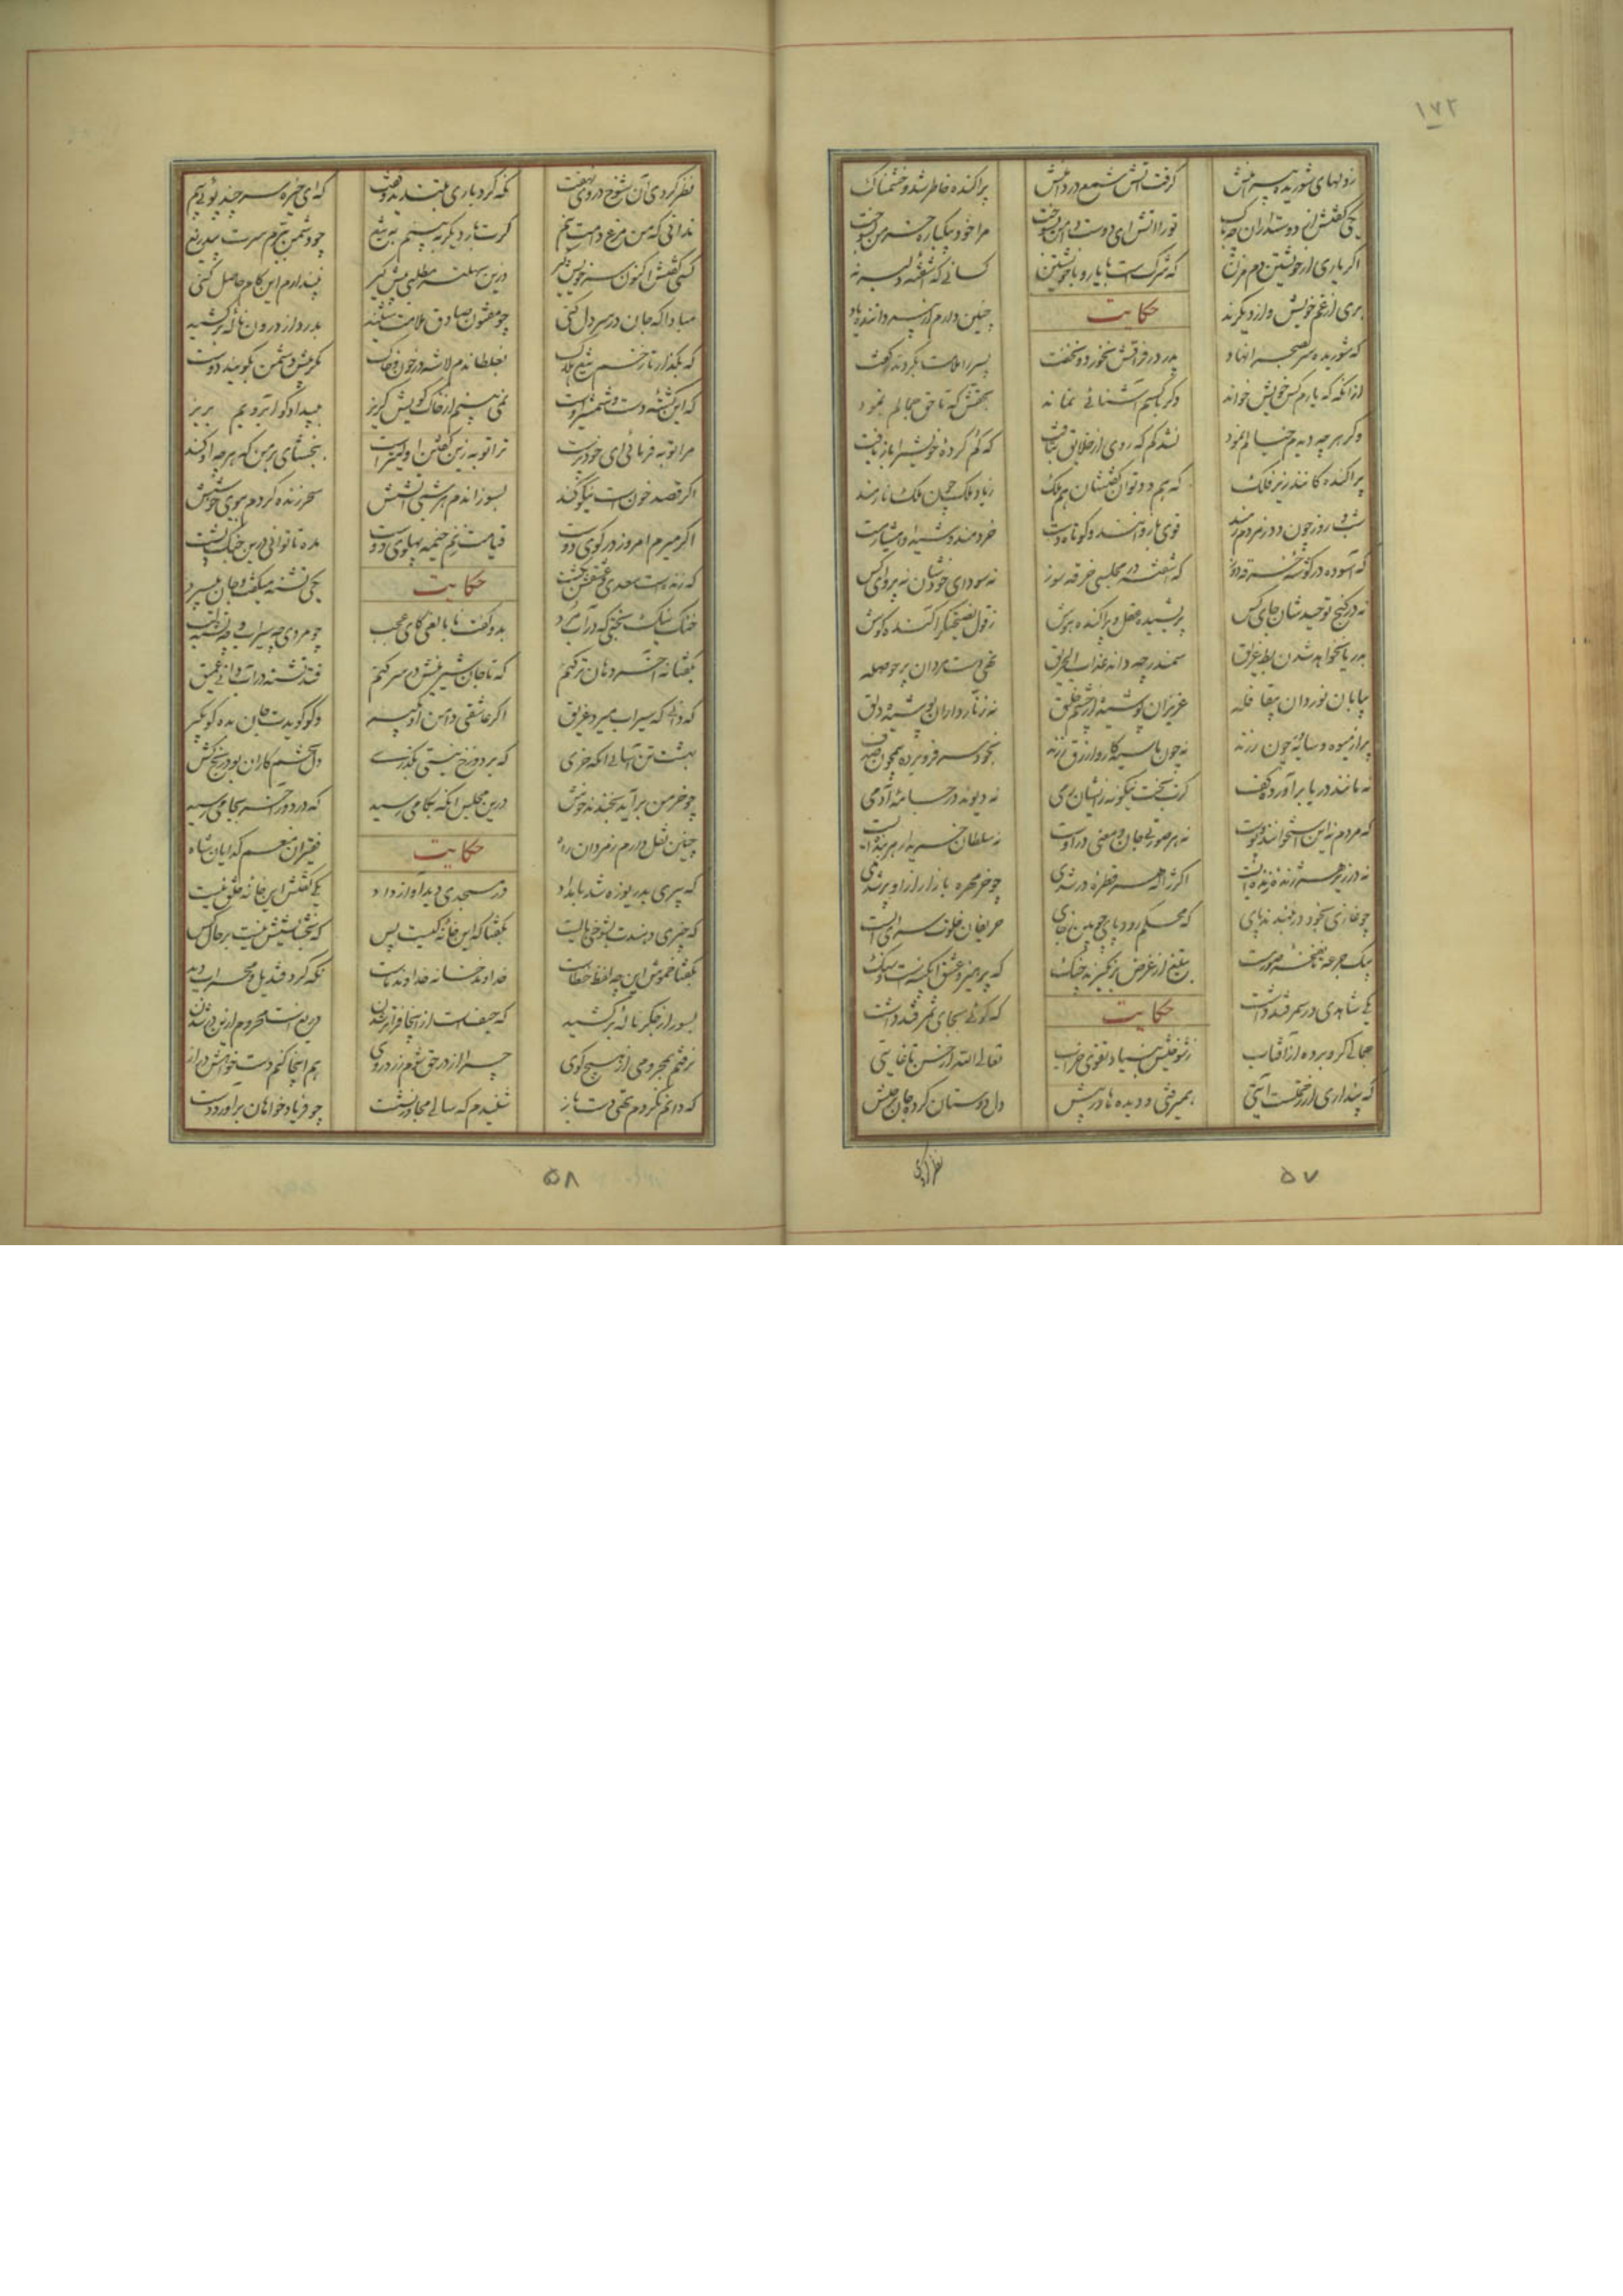 ۱۷۲
ز دلهای شوریده پیرامنش گرفت آتش شمع در دامنش پراکنده خاطر شد و خشمناک
یکی گفتش از دوستداران چه باک تو را آتش ای دوست دامن بسوخت مرا خود بیکباره خرمن بسوخت
اگر یاری از خویشتن دم مزن که شرکست با یار و با خویشتن کسانی که آشفته دلبرند
بری از غم خویش و از دیگرند حکایت چنین دارم از پیر داننده یاد
که شوریده سر بصحرا نهاد پدر در فراقش نخورد و نخفت پسر را ملامت بکردند گفت
از آنگه که یارم کس خویش خواند دگر با کسم آشنائی نماند بحقش که تا حق جمالم نمود
دگر هر چه دیدم خیالم نمود نشد گم که روی از خلایق بتافت که گم کرده خویش را بازیافت
پراکنده گانند زیر فلک که هم دد توان گفتشان هم ملک ز یاد ملک چون ملک نارمند
شب و روز چون دد ز مردم رمند قوی بازوانند و کوتاه دست خردمند و شیدا و هشیار مست
که آسوده در گوشه خرقه دوز که آشفته در مجلسی خرقه سوز نه سودای خودشان نه پروای کس
نه در کنج توحیدشان جای کس پریشیده عقل و پراکنده هوش ز قول نصیحتگر آکنده گوش
بدریا نخواهد شدن بط غریق سمندر چه داند عذاب الحریق تهی دست مردان پر حوصله
بیابان نوردان بیقافله عزیزان پوشیده از چشم خلق نه زنار داران پوشیده دلق
پر از میوه و سایه چون رزند نه چون ما سیه کار و ازرق رزند بخود سر فرو برده همچون صدف
نه مانند دریا برآورده کف گرت بخت نیکو نه زیشان رمی نه دیوند در جامه آدمی
که مردم نه این استخوانند و پوست نه هر صورتی جان معنی در اوست نه سلطان خریدار هر بنده است
نه در زیر هر ژنده زنده است اگر ژاله هر قطره در شدی چو خرمهره بازار از او پر شدی
چو غازی بخود در نبندند پای که محکم رود پای چوبین ز جای حریفان خلوت سرای الست
بیک جرعه تا نفخه صور مست بتیغ از غرض برنگیرند چنگ که پرهیز و عشق آبگینست و سنگ
یکی شاهدی در سمرقند داشت حکایت که گوئی بجای سمر قند داشت
جمالی گرو برده از آفتاب ز شوخیش بنیاد تقوی خراب تعالی الله از حسن تا غایتی
که پنداری از رحمتست آیتی همیرفتی و دیده ها در پیش دل دوستان کرده جان برخیش
نظر کردی
۵۷
نظر کردی آن شوخ در وی نهفت نگه کرد باری بتندی و گفت که ای خیره سر چند پوئی پیم
ندانی که من مرغ دامت نیم گرت بار دیگر ببینم به تیغ چو دشمن ببرم سرت بیدریغ
کسی گفتش اکنون سر خویش گیر ازین سهلتر مطلبی پیش گیر نپندارم این کام حاصل کنی
مبادا که جان در سر دل کنی چو مفتون صادق ملامت شنید بدرد از درون ناله برکشید
که بگذار تا زخم تیغ هلاک بغلطاندم لاشه در خون و خاک مگر پیش دشمن بگویند و دوست
که این کشته دست و شمشیر اوست نمی بینم از خاک کویش گریز به بیداد گو آبرویم بریز
مرا توبه فرمائی ای خودپرست ترا توبه زین گفتن اولیتر است ببخشای بر من که هر چه او کند
اگر قصد خونست نیکو کند بسوزاندم هر شبی آتشش سحر زنده گردم ببوی خوشش
اگر میرم امروز در کوی دوست قیامت زنم خیمه پهلوی دوست مده تا توانی درین جنگ پشت
که زنده است سعدی که عشقش بکشت حکایت یکی تشنه میگفت و جان میسپرد
خنک نیک بختی که در آب مرد بدو گفت نابالغی کای عجب چو مردی چه سیراب و چه خشک لب
بگفتا نه آخر دهان تر کنم که تا جان شیرینش در سر کنم فتد تشنه در آبدان عمیق
که داند که سیراب میرد غریق اگر عاشقی دامن او بگیر وگر گویدت جان بده گو بگیر
بهشت تن آسانی آنگه خوری که بر دوزخ نیستی بگذری دل تخم کاران بود رنج کش
چو خرمن برآید بخندند خوش درین مجلس آنکه بکامی رسید که در دور آخر بجامی رسید
چنین نقل دارم ز مردان راه حکایت فقیران منعم گدایان شاه
که پیری بدریوزه شد بامداد در مسجدی دید آواز داد یکی گفتش این خانه خلق نیست
که چیزی دهندت بشوخی مایست بگفتا که این خانه کیست پس که بخشایشش نیست بر حال کس
بگفتا خموش این چه لفظ خطاست خداوند خانه خداوند ماست نگه کرد قندیل و محراب دید
بسوز از جگر ناله برکشید که حیف است از اینجا فراتر شدن دریغست محروم ازین در شدن
نرفتم بمحرومی از هیچ کوی چرا از در حق شوم زردروی هم اینجا کنم دست خواهش دراز
که دانم نگردم تهی دست باز شنیدم که سالی مجاور نشست چو فریاد خواهان برآورد دست
۵۸